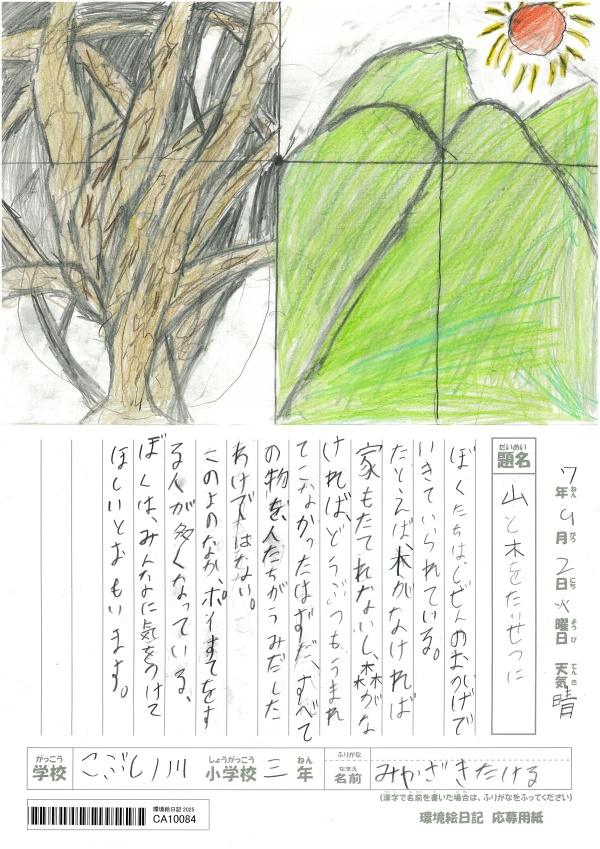 7年9月2日火曜日 天気晴
ねん がつ にち ようび てんき
だいめい
題名
山と木をたいせつに
ぼくたちは、しぜんのおかげで
いきていられている。
たとえば、木がなければ
家もたてれないし、森がな
ければ、どうぶつもうまれ
てこなかったはずだ、すべて
の物を、人たちがうみだした
わけではない。
このよのなか、ポイすてをす
る人が多くなっている、
ぼくは、みんなに気をつけて
ほしいとおもいます。
がっこう
学校
こぶし川
しょうがっこう
小学校
三
ねん
年
ふりがな
なまえ
名前
みかざきたける
(漢字で名前を書いた場合は、ふりがなをふってください)
環境絵日記 2025
CA10084
環境絵日記 応募用紙